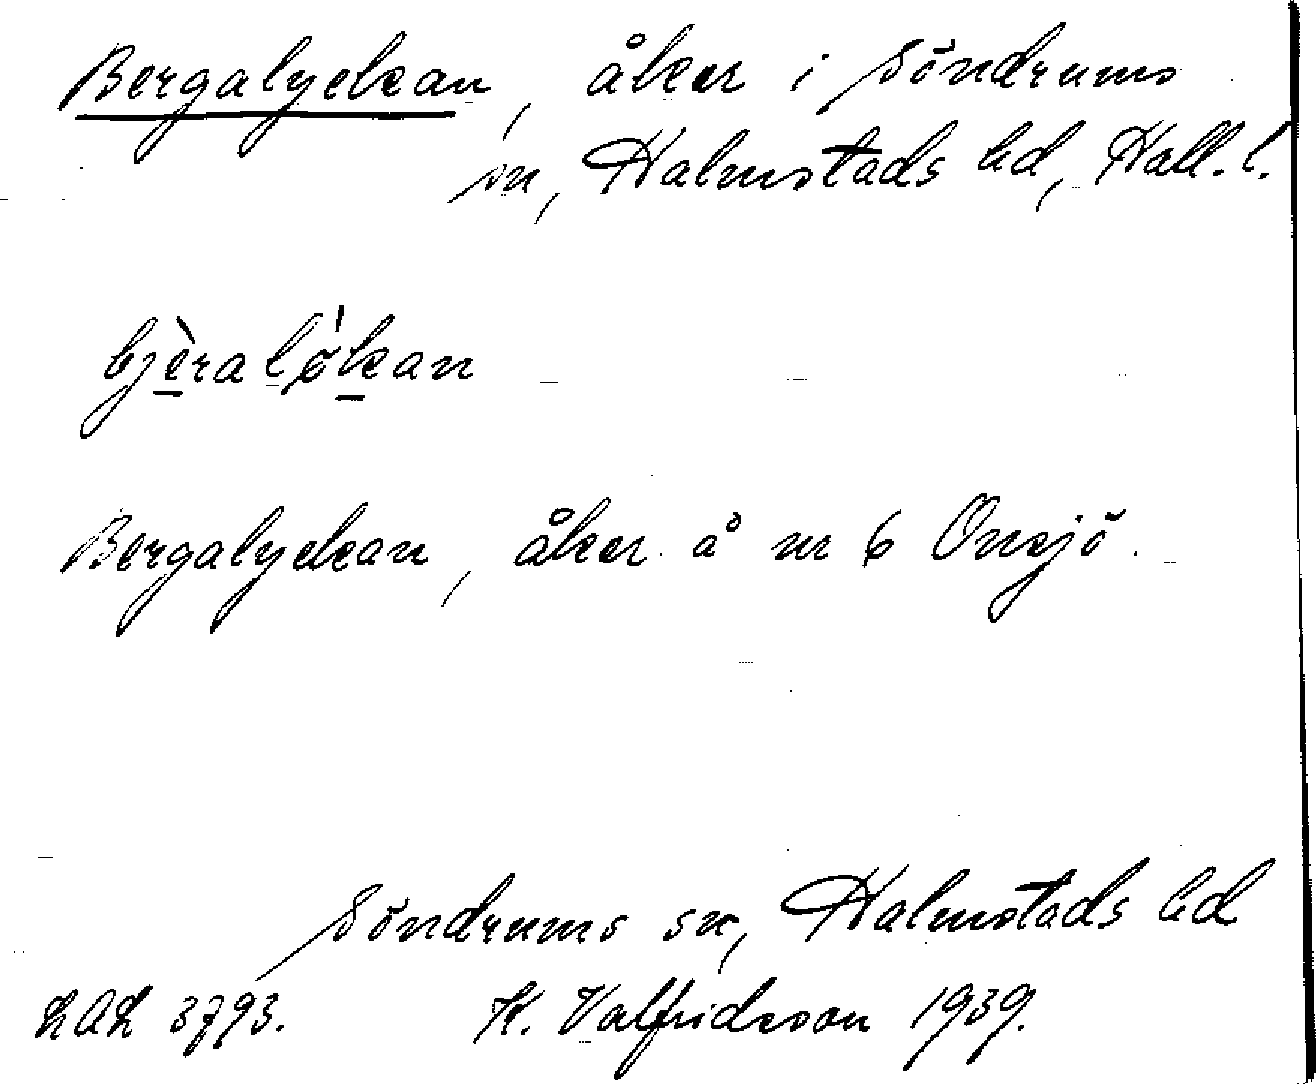 Bergalyckan, åker i Söndrums
sn, Halmstads hd, Hall. l.
bjèralǿkan
Bergalyckan, åker å nr 6 Onsjö.
Söndrums sn, Halmstads hd
LAL 3793. K. Valfridsson 1939.